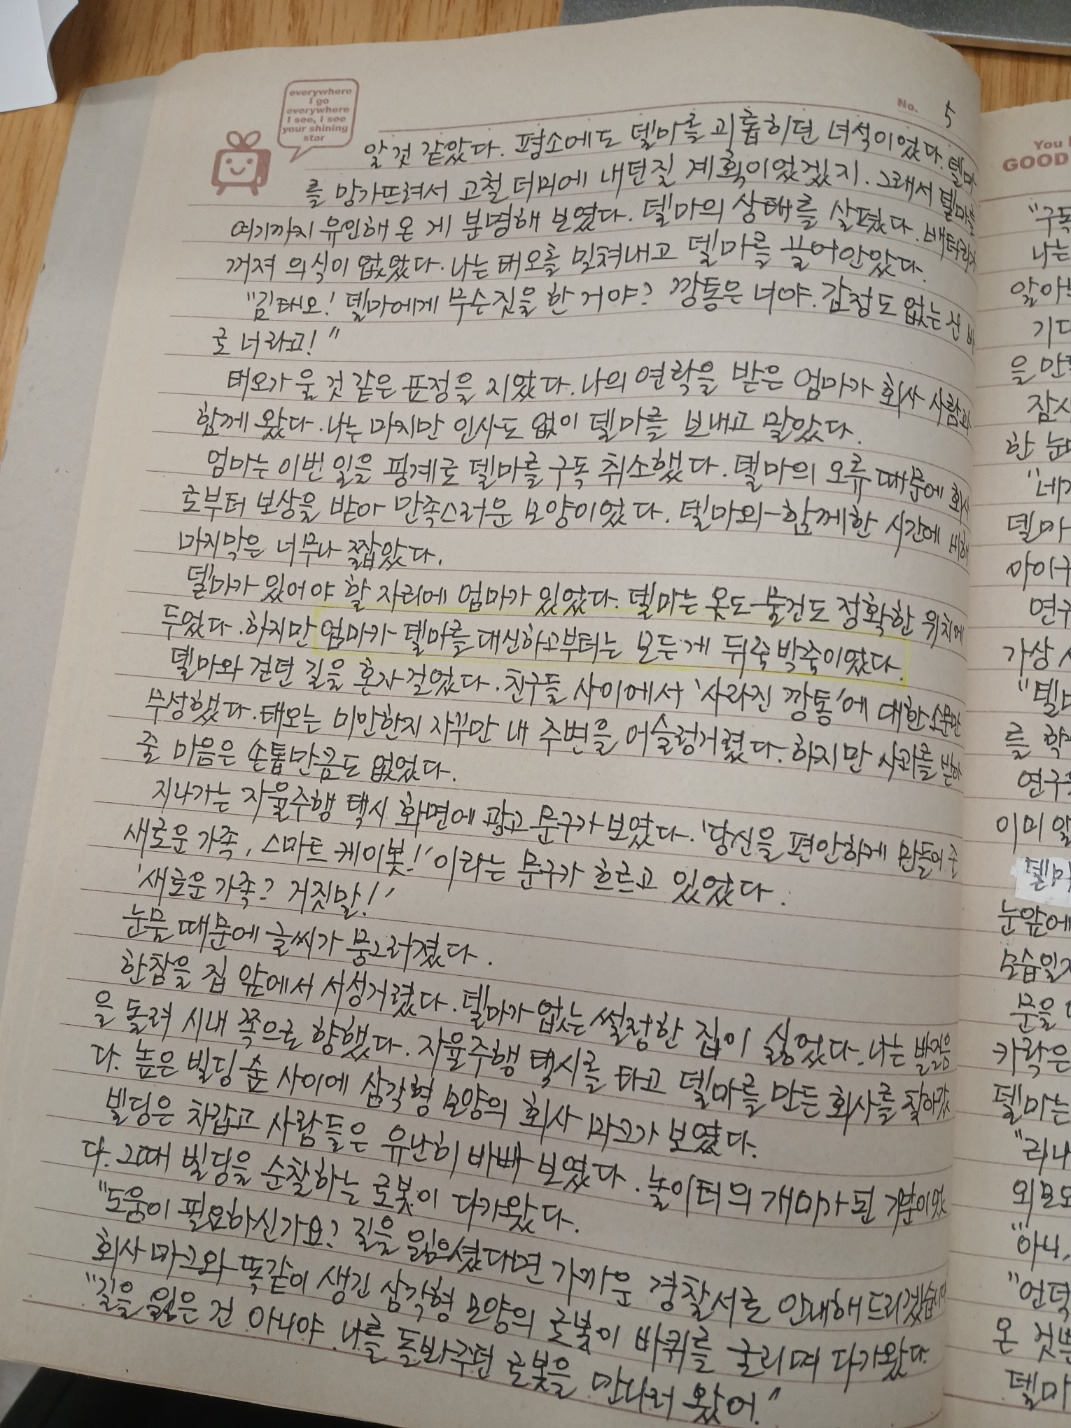 everywhere
I go
everywhere
I see, I see
your shining
star
No. 5
알 것 같았다. 평소에도 델마를 괴롭히던 녀석이었다. 델마
를 망가뜨려서 고철 더미에 내던질 계획이었겠지. 그래서 델마를
여기까지 유인해 온 게 분명해 보였다. 델마의 상태를 살폈다. 배터리가
꺼져 의식이 없었다. 나는 태오를 밀쳐내고 델마를 끌어안았다.
"김태오! 델마에게 무슨짓을 한 거야? 깡통은 너야. 감정도 없는 건 바
로 너라고!"
태오가 울 것 같은 표정을 지었다. 나의 연락을 받은 엄마가 회사 사람과
함께 왔다. 나는 마지만 인사도 없이 델마를 보내고 말았다.
엄마는 이번 일을 핑계로 델마를 구독 취소했다. 델마의 오류 때문에 회사
로부터 보상을 받아 만족스러운 모양이었다. 델마와 함께한 시간에 비해
마지막은 너무나 짧았다.
델마가 있어야 할 자리에 엄마가 있었다. 델마는 옷도 물건도 정확한 위치에
두었다. 하지만 엄마가 델마를 대신하고부터는 모든 게 뒤죽박죽이었다.
델마와 걷던 길을 혼자 걸었다. 친구들 사이에서 '사라진 깡통'에 대한 소문만
무성했다. 태오는 미안한지 자꾸만 내 주변을 어슬렁거렸다. 하지만 사과를 받아
줄 마음은 손톱만큼도 없었다.
지나가는 자율주행 택시 화면에 광고 문구가 보였다. '당신을 편안하게 만들어 줄
새로운 가족, 스마트 케이봇!' 이라는 문구가 흐르고 있었다.
'새로운 가족? 거짓말!'
눈물 때문에 글씨가 뭉그러졌다.
한참을 집 앞에서 서성거렸다. 델마가 없는 썰렁한 집이 싫었다. 나는 발걸음
을 돌려 시내 쪽으로 향했다. 자율주행 택시를 타고 델마를 만든 회사를 찾아갔
다. 높은 빌딩 숲 사이에 삼각형 모양의 회사 마크가 보였다.
빌딩은 차갑고 사람들은 유난히 바빠 보였다. 놀이터의 개미가 된 기분이었
다. 그때 빌딩을 순찰하는 로봇이 다가왔다.
"도움이 필요하신가요? 길을 잃으셨다면 가까운 경찰서로 안내해 드리겠습니다
회사 마크와 똑같이 생긴 삼각형 모양의 로봇이 바퀴를 굴리며 다가왔다.
"길을 잃은 건 아니야. 나를 돌봐주던 로봇을 만나러 왔어."
You
GOOD
"구독
나는
알아
기다
을 만
잠시
한 눈
"네
델마
아이구
연구
가상
"델
를 학
연구
이미 알
델마
눈앞에
모습일
문을
카락은
델마는
"리나
외모
"아니,
"언덕
온 것
델마